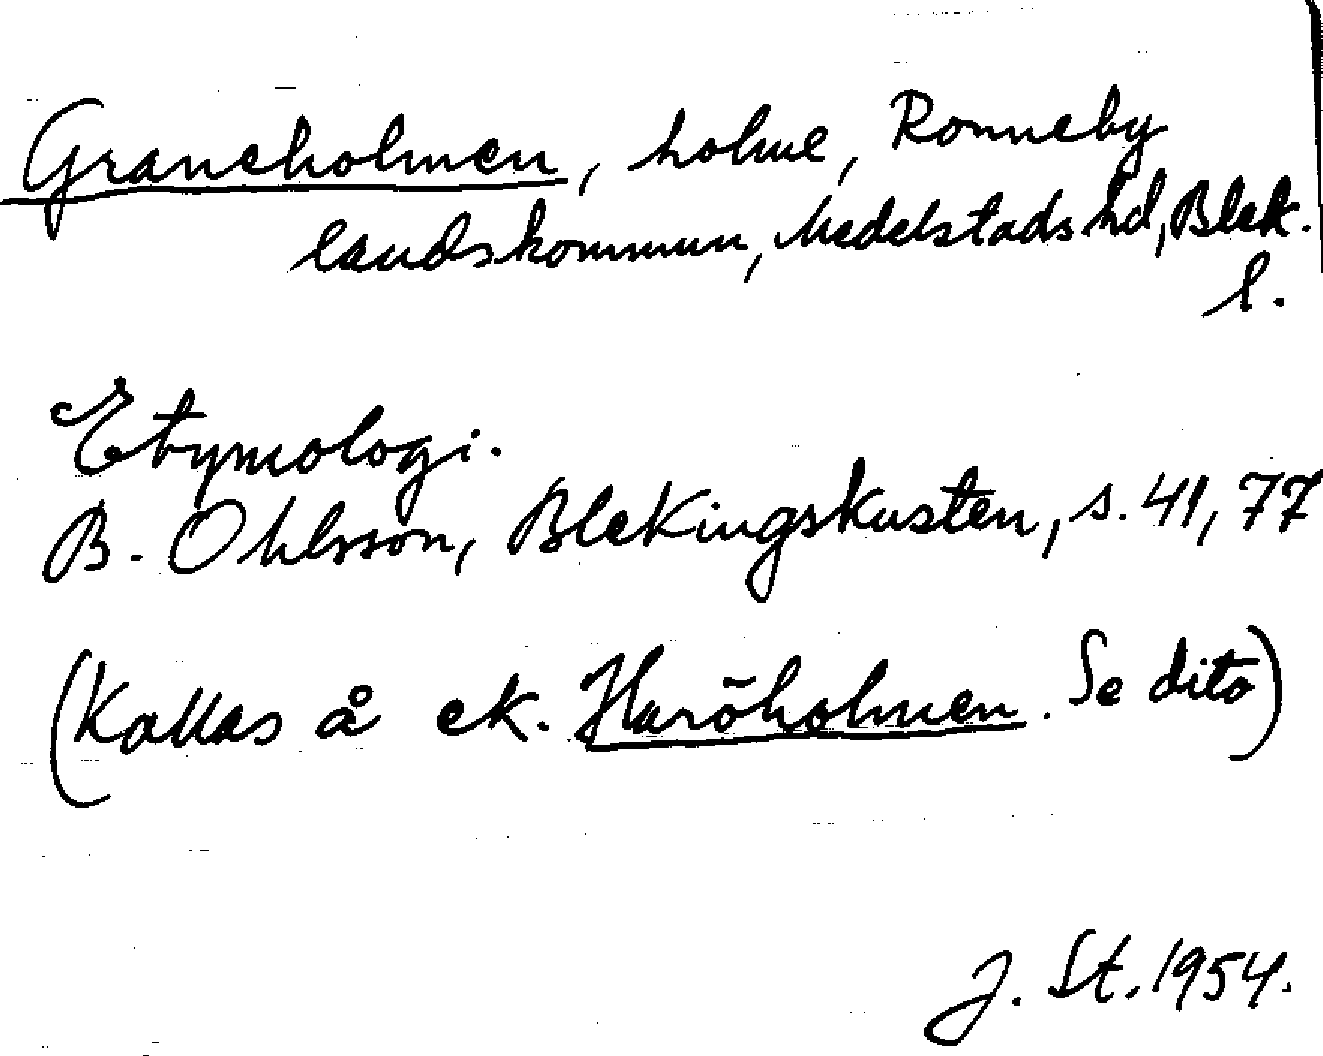 Graneholmen, holme, Ronneby
landskommun, Medelstads hd, Blek.
l.
Etymologi.
B. Ohlsson, Blekingskusten, s. 41, 77
(Kallas å ek. Haröholmen. Se dito)
J. St. 1954.